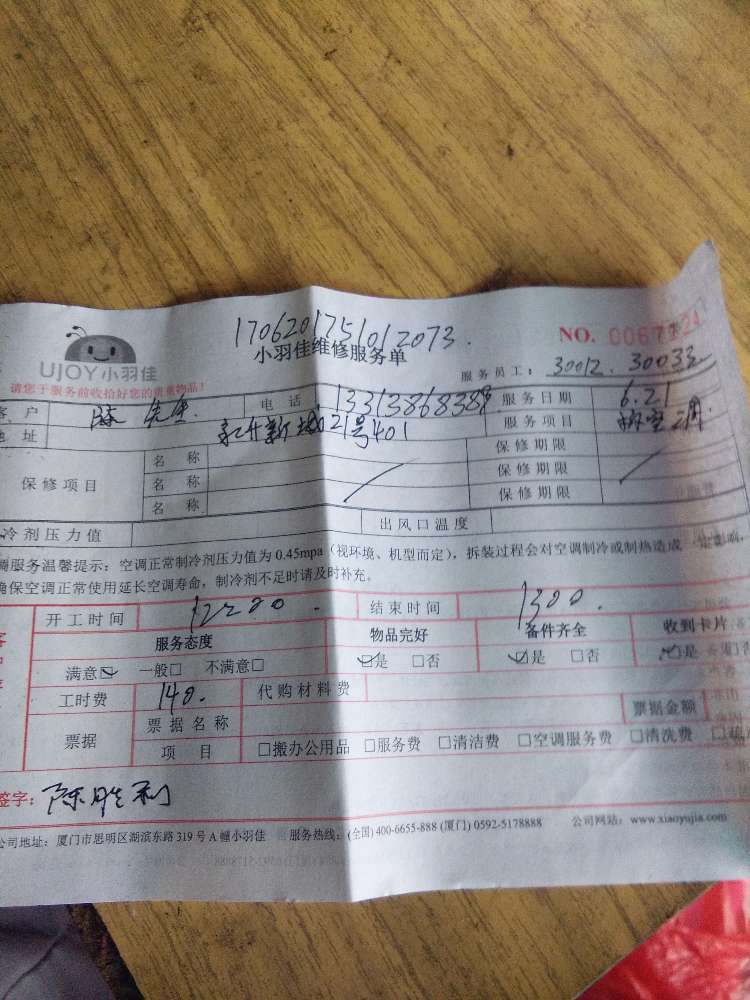 1706201751012073.
UJOY小羽佳
小羽佳维修服务单
NO.
请您于服务前收拾好您的贵重物品!
服务员工: 30012. 30033
客户 陈先生. 电话 服务日期 6.21
地址 21号401 服务项目 空调
保修项目 名称 保修期限
名称 保修期限
名称 保修期限
冷剂压力值 出风口温度
服务温馨提示:空调正常制冷剂压力值为0.45mpa(视环境、机型而定),拆装过程会对空调制冷或制热造成一定影响,
确保空调正常使用延长空调寿命,制冷剂不足时请及时补充。
开工时间 结束时间 1300.
服务态度 物品完好 备件齐全 收到卡片
满意☑ 一般□ 不满意□ ☑是 □否 ☑是 □否 ☑是
工时费 140. 代购材料费
票据 票据名称 票据金额
项目 □搬办公用品 □服务费 □清洁费 □空调服务费 □清洗费
签字: 陈胜利
公司地址:厦门市思明区湖滨东路319号A幢小羽佳 服务热线:(全国)400-6655-888 (厦门) 0592-5178888 公司网站:www.xiaoyujia.com